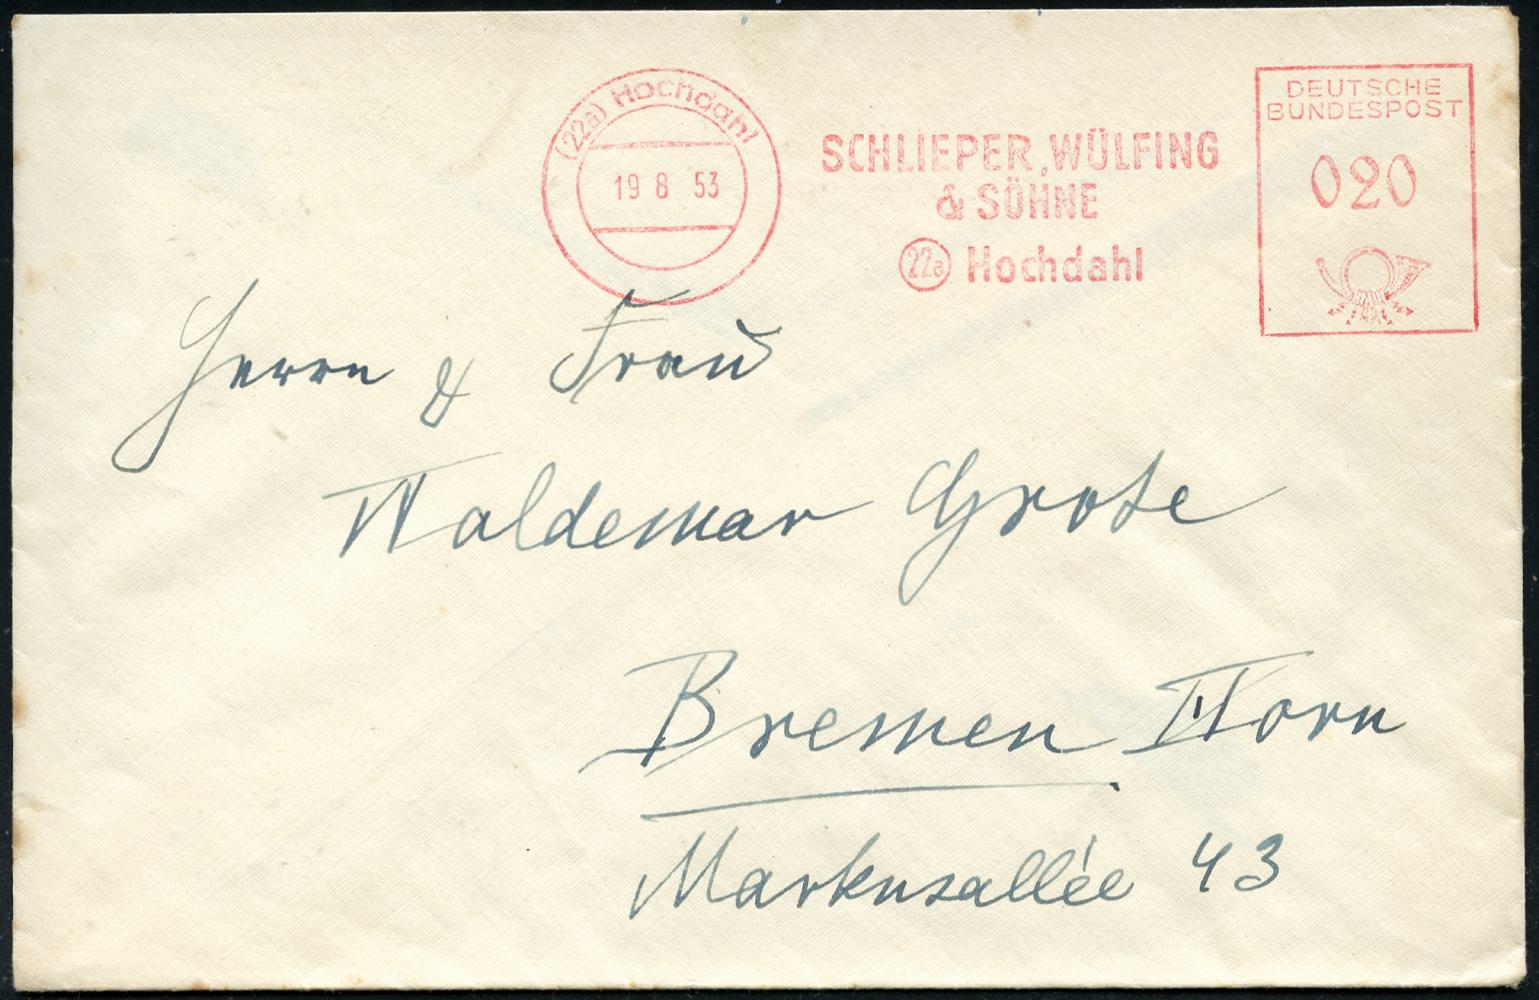 (22a) Hochdahl
19 8 53
SCHLIEPER, WÜLFING
& SÖHNE
22a Hochdahl
DEUTSCHE
BUNDESPOST
020
Herrn & Frau
Waldemar Grote
Bremen Horn
Markusallée 43